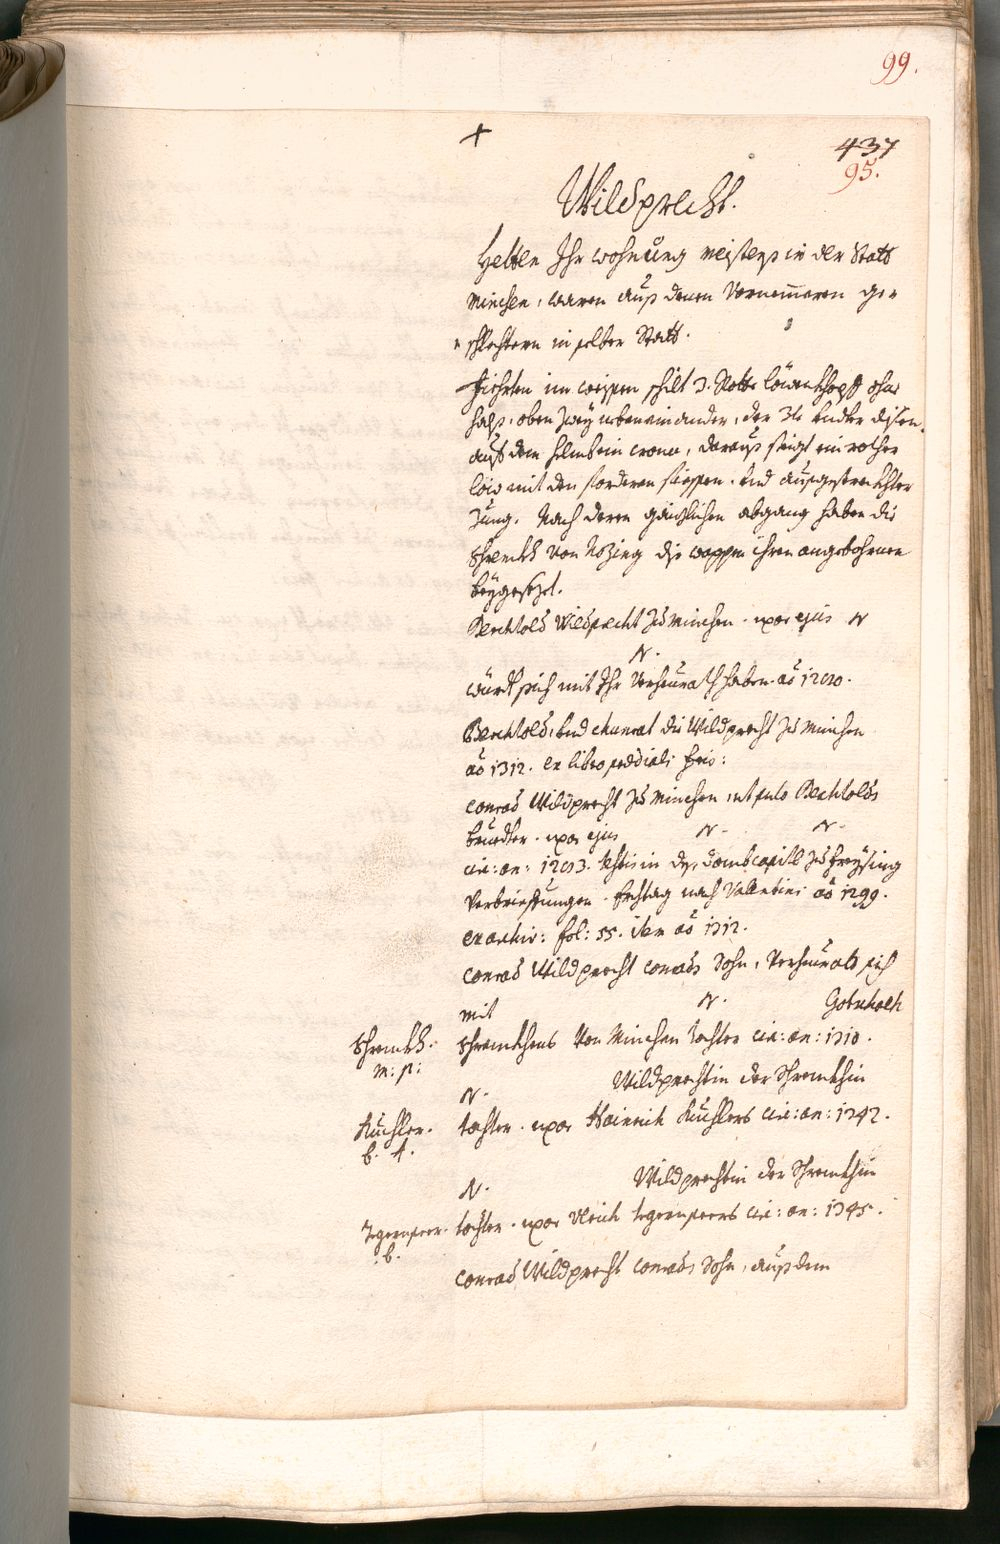 99.
+
437
95.
Wildprecht.
Hetten Ihr wohnung meistens in der Statt
Minchen, waren auß denen Vernemmeren ge=
=schlechtern in selber Statt.
Fiehrten im wappen schilt 3. Rotte löwenkhöpff ohne
halß, oben zwey nebeneinander, der 3te under disen.
auf dem helmb ein cronn, darauß steigt ein rother
löw mit den forderen fiessen. und außgestreckhter
Zung. Nach deren gänzlichen abgang haben die
Schrenckh von Nozing diß wappen ihren angebohrnen
beygesezt.
Berchtold Wildprecht zu Minchen. uxor ejus N
N.
würdt sich mit Ihr Verheurath haben. aõ 1260.
Berchtold, und Chunrat die Wildprecht zu Minchen
aõ 1312. ex libro prediali
Conrad Wildprecht zu Minchen, ut puto Berchtolds
brueder. uxor ejus N. N.
cir: an: 1263. in der dombcapitl zu Freysing
Verbriefftungen. Erchtag nach Valentini aõ 1299.
ex archiv: fol: 55. item aõ 1312.
Conrad Wildprecht Conrads Sohn, Verheurath sich
mit N.
Schrenckh. Schrenckhens Von Minchen Tochter cir: an: 1310.
m: p:
N. Wildprechtin der Schrenckhin
Küchler. tochter. uxor Hainrich Küchlers cir: an: 1342.
b. A.
N. Wildprechtin der Schrenckhin
Tegernseer. tochter. uxor Ulrich Tegernseers cir: an: 1345.
b.
Conrad Wildprecht Conrads Sohn, auß dem